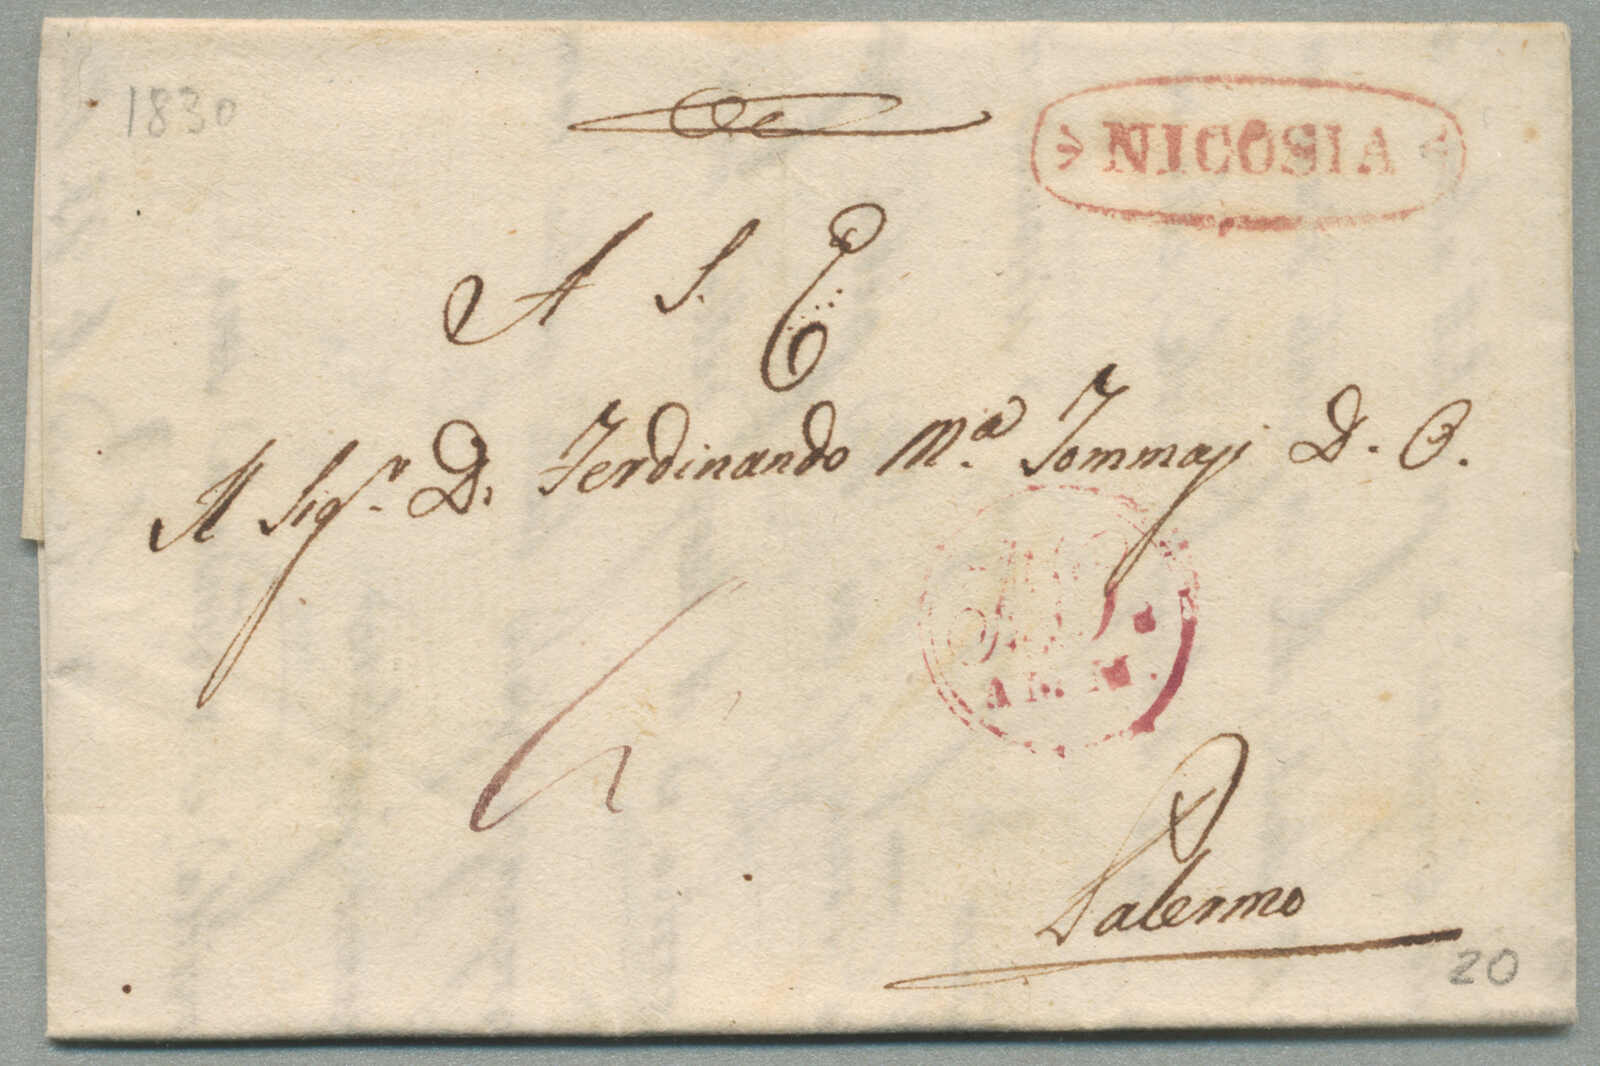 1830
NICOSIA
A S. E.
A Sigr. D. Ferdinando Ma. Tommasi D. O.
Palermo
20